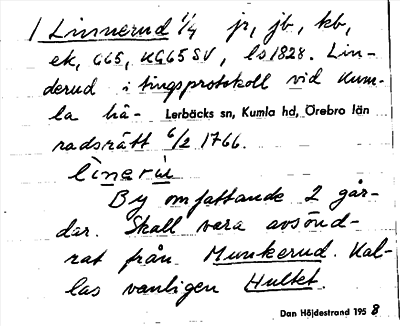 / Linnerud 1/4 jr, jb, kb,
ek, G65, KG65 SV, ls 1828. Lin-
derud i tingsprotokoll vid Kum-
la hä- Lerbäcks sn, Kumla hd, Örebro län
radsrätt 6/2 1766.
linerù
By omfattande 2 går-
dar. Skall vara avsönd-
rat från Munkerud. Kal-
las vanligen Hultet.
Dan Höjdestrand 1958